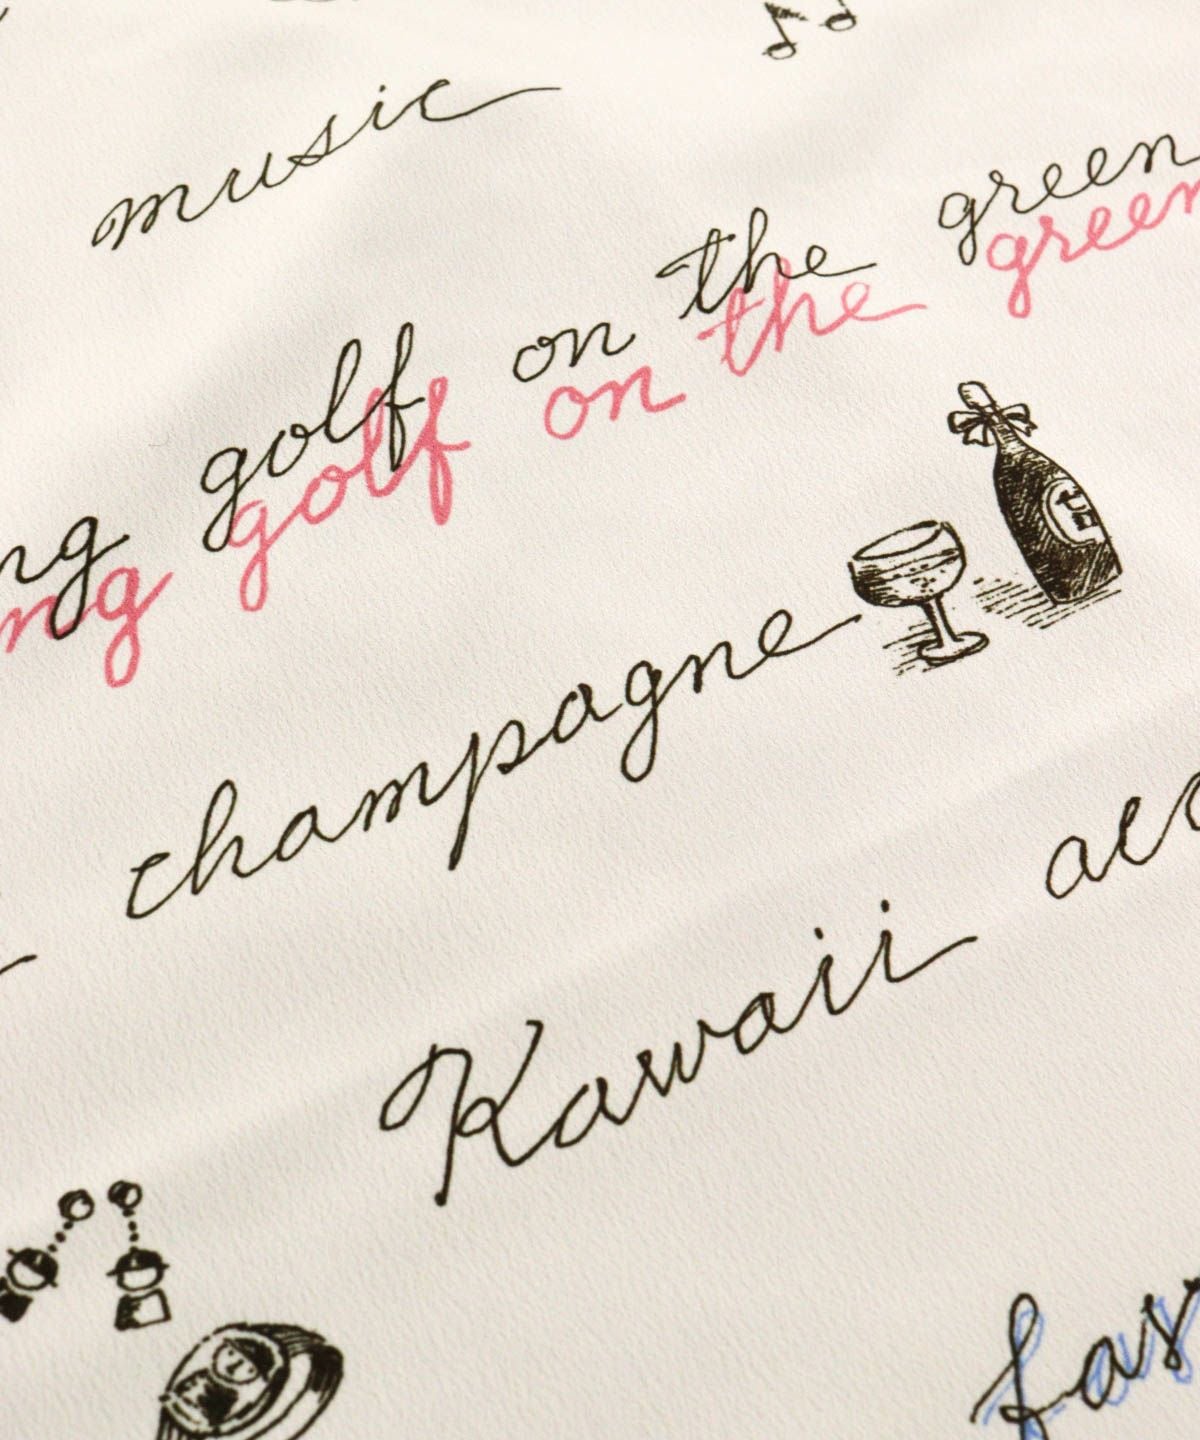 music
ng golf on the green
ng golf on the green
champagne
Kawaii acc
fas